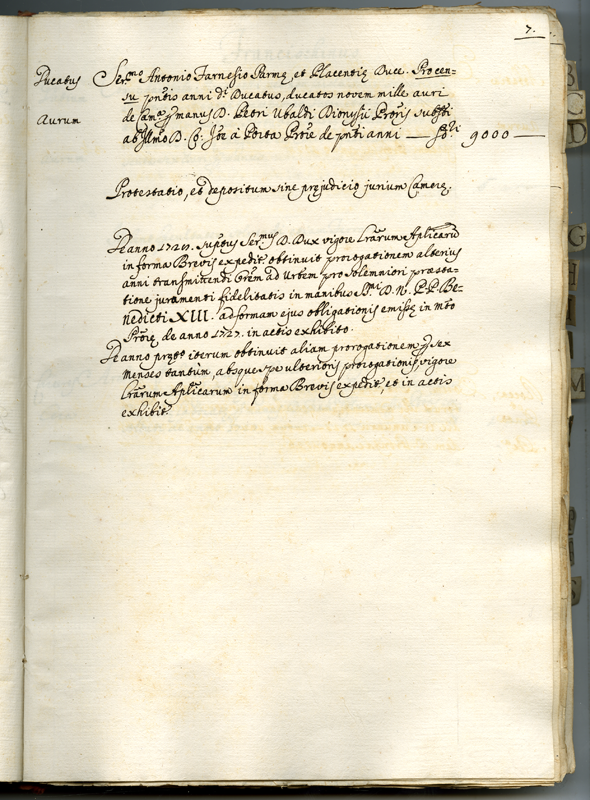 7.
Ducatus Ser.mo Antonio Farnesio Parmę, et Placentię Duce. Pro cen-
su pntis anni d.i Ducatus, ducatos novem mille auri
Aurum de manus D. Petri Ubaldi Dionysii
ab Illmo D. a Porta de pnti anni — 9000 —
Protestatio, et depositum sine prejudicio jurium Camerę.
De anno supttus Ser.mus D. Dux vigore Lrarum Aplicarū
in forma Brevis expedit. obtinuit prorogationem alterius
anni transmittendi ad Urbem pro solemniori præsta-
tione juramenti fidelitatis in manibus D. N. P.P. Be-
nedicti XIII. ad formam ejus obligationis emissę in
de anno 1727. in actis exhibito.
De anno iterum obtinuit aliam prorogationem sex
menses tantùm, absque spe ulterioris prorogationis, vigore
Lrarum Aplicarum in forma Brevis expedit., et in actis
exhibit.
B
C
D
G
H
I
M
S